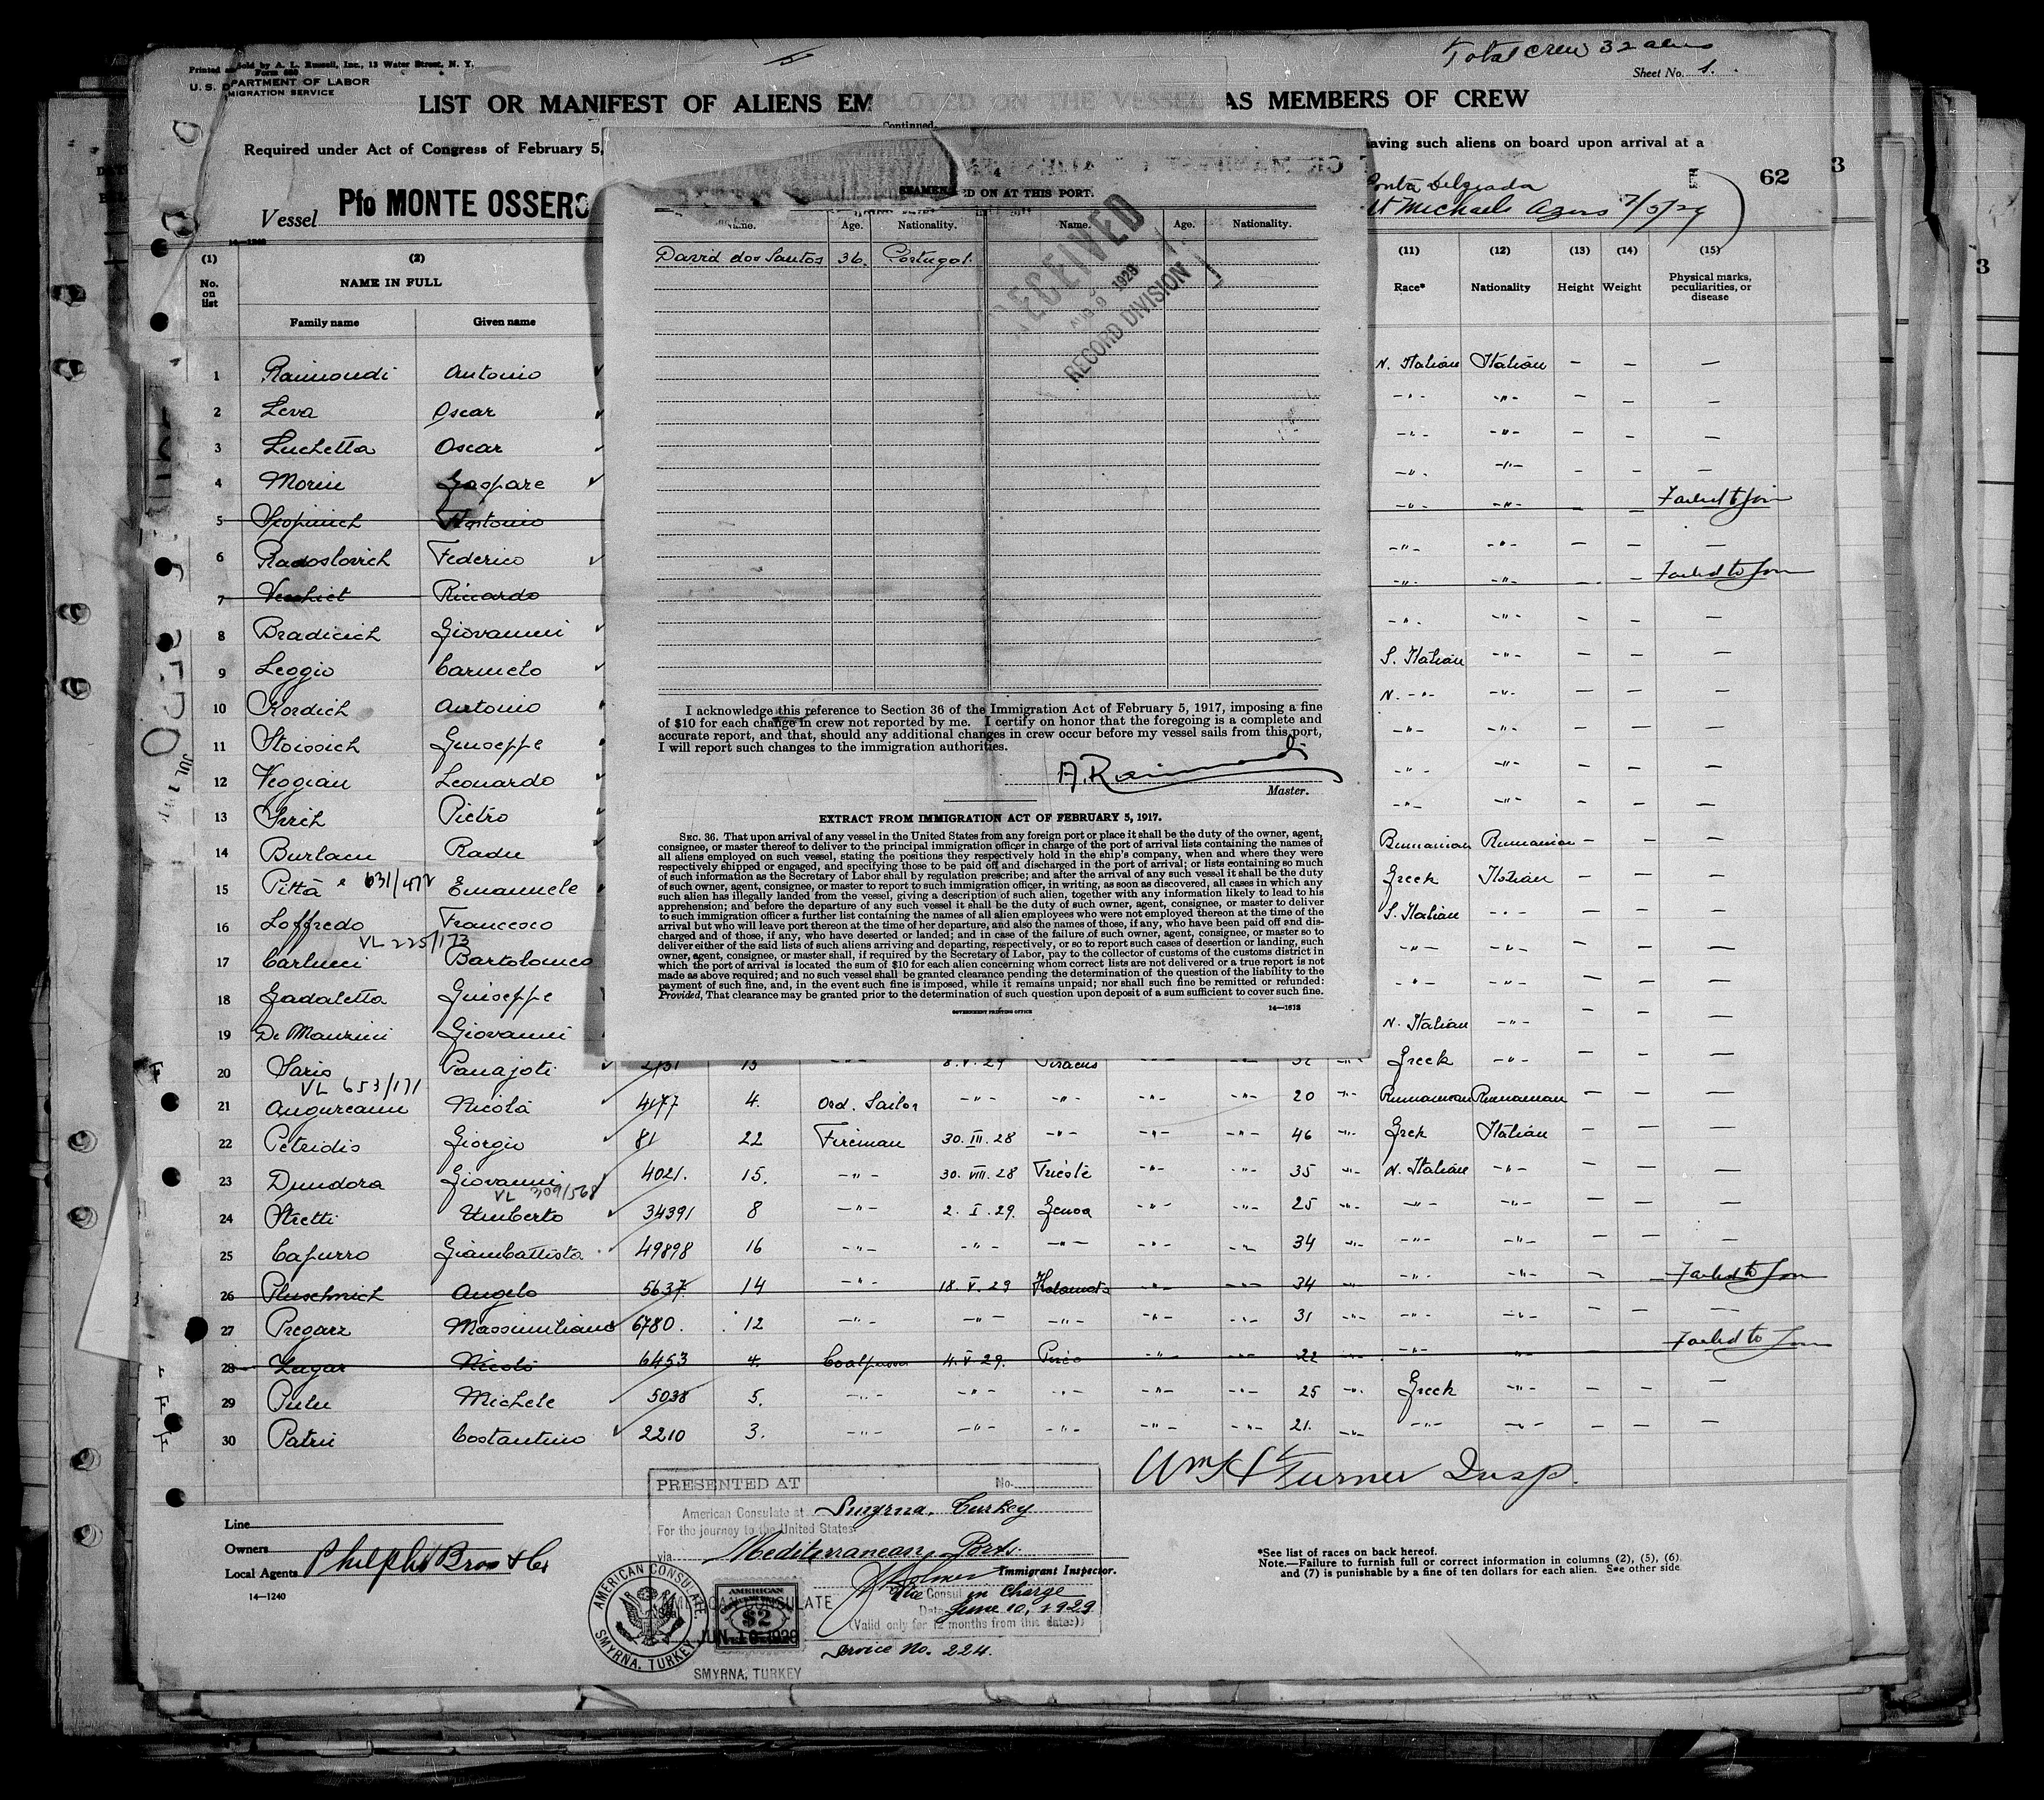 Total crew 32 aliens
Printed and Sold by A. L. Russell, Inc., 13 Water Street, N. Y.
Form 680
U. S. DEPARTMENT OF LABOR
MIGRATION SERVICE
Sheet No. 1.
LIST OR MANIFEST OF ALIENS EMPLOYED ON THE VESSEL AS MEMBERS OF CREW
Required under Act of Congress of February 5,
aving such aliens on board upon arrival at a
62
Vessel Pfo MONTE OSSERO
Ponta Delgada
St Michaels Azores 7/5/29
14—1240
(1) (2) (11) (12) (13) (14) (15)
No. on list NAME IN FULL Race* Nationality Height Weight Physical marks, peculiarities, or disease
Family name Given name
1 Raimondi Antonio N. Italian Italian — — —
2 Leva Oscar -"- -"- — — —
3 Luchetta Oscar -"- -"- — — —
4 Morin Gaspare -"- -"- — — —
5 Scopinich Antonio -"- -"- — — Failed to join
6 Radoslovich Federico -"- -"- — — —
7 Riccardo -"- -"- — — Failed to join
8 Bradicich Giovanni -"- -"- — — —
9 Leggio Carmelo S. Italian -"- — — —
10 Kordich Antonio N. -"- -"- — — —
11 Stoissich Giuseppe -"- -"- — — —
12 Veggian Leonardo -"- -"- — — —
13 Sirch Pietro -"- -"- — — —
14 Burlacu Radu Rumanian Rumanian — — —
15 Pittà 631/472 Emanuele Greek Italian — — —
16 Loffredo Francesco S. Italian -"- — — —
VL 225/173
17 Carlucci Bartolomeo -"- -"- — — —
18 Gadaletta Guiseppe -"- -"- — — —
19 De Manzini Giovanni N. Italian -"- — — —
20 Saris Panajoti 15 8.V.29 Piraeus Greek -"- — — —
VL 653/171
21 Angureanu Nicola 4177 4. Ord. Sailor -"- -"- -"- -"- 20 -"- Rumanian Rumanian — — —
22 Petridis Giorgio 81 22 Fireman 30. III. 28 -"- -"- -"- 46 -"- Grek Italian — — —
23 Dundora Giovanni 4021. 15. -"- 30. VIII. 28 Trieste -"- -"- 35 -"- N. Italian -"- — — —
VL 309/568
24 Stretti Umberto 34391 8 -"- 2. I. 29. Genoa -"- -"- 25 -"- -"- -"- — — —
25 Capurro Giambattista 49898 16 -"- -"- -"- -"- -"- 34 -"- -"- -"- — — —
26 Angelo 5637 14 -"- 18. V. 29 Kalamata -"- -"- 34 -"- -"- -"- — — Failed to join
27 Pregarz Massimiliano 6780. 12 -"- -"- -"- -"- -"- 31 -"- -"- -"- — — —
28 Zugar Nicolò 6453 4. Coalpasser 4. V. 29. Pireo -"- -"- 22 -"- -"- -"- Failed to join
29 Pulu Michele 5038 5. -"- -"- -"- -"- -"- 25 -"- Greek -"- — — —
30 Patrii Costantino 2210 3. -"- -"- -"- -"- -"- 21. -"- -"- -"- — — —
Continued.
SEAMEN
D ON AT THIS PORT.
Name. Age. Nationality. Name. Age. Nationality.
David dos Santos 36. Portugal.
RECEIVED
AUG 9 1929
RECORD DIVISION
I acknowledge this reference to Section 36 of the Immigration Act of February 5, 1917, imposing a fine
of $10 for each change in crew not reported by me. I certify on honor that the foregoing is a complete and
accurate report, and that, should any additional changes in crew occur before my vessel sails from this port,
I will report such changes to the immigration authorities.
A. Raimondi
Master.
EXTRACT FROM IMMIGRATION ACT OF FEBRUARY 5, 1917.
SEC. 36. That upon arrival of any vessel in the United States from any foreign port or place it shall be the duty of the owner, agent,
consignee, or master thereof to deliver to the principal immigration officer in charge of the port of arrival lists containing the names of
all aliens employed on such vessel, stating the positions they respectively hold in the ship's company, when and where they were
respectively shipped or engaged, and specifying those to be paid off and discharged in the port of arrival; or lists containing so much
of such information as the Secretary of Labor shall by regulation prescribe; and after the arrival of any such vessel it shall be the duty
of such owner, agent, consignee, or master to report to such immigration officer, in writing, as soon as discovered, all cases in which any
such alien has illegally landed from the vessel, giving a description of such alien, together with any information likely to lead to his
apprehension; and before the departure of any such vessel it shall be the duty of such owner, agent, consignee, or master to deliver
to such immigration officer a further list containing the names of all alien employees who were not employed thereon at the time of the
arrival but who will leave port thereon at the time of her departure, and also the names of those, if any, who have been paid off and dis-
charged and of those, if any, who have deserted or landed; and in case of the failure of such owner, agent, consignee, or master so to
deliver either of the said lists of such aliens arriving and departing, respectively, or so to report such cases of desertion or landing, such
owner, agent, consignee, or master shall, if required by the Secretary of Labor, pay to the collector of customs of the customs district in
which the port of arrival is located the sum of $10 for each alien concerning whom correct lists are not delivered or a true report is not
made as above required; and no such vessel shall be granted clearance pending the determination of the question of the liability to the
payment of such fine, and, in the event such fine is imposed, while it remains unpaid; nor shall such fine be remitted or refunded:
Provided, That clearance may be granted prior to the determination of such question upon deposit of a sum sufficient to cover such fine.
GOVERNMENT PRINTING OFFICE 14—1613
Wm H Turner Insp.
PRESENTED AT No.
American Consulate at Smyrna, Turkey
For the journey to the United States
via Mediterranean Ports.
Immigrant Inspector.
Vice Consul in Charge
Date June 10, 1929
(Valid only for 12 months from this date.)
Service No. 224.
Line
Owners
Local Agents Philpho Bros & Co
14—1240
AMERICAN CONSULATE SMYRNA, TURKEY
AMERICAN CONSULATE
JUN 10 1929
SMYRNA, TURKEY
AMERICAN
$2
*See list of races on back hereof.
Note.—Failure to furnish full or correct information in columns (2), (5), (6)
and (7) is punishable by a fine of ten dollars for each alien. See other side